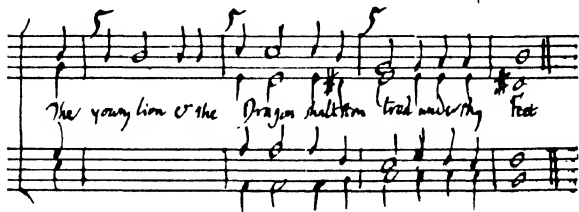 5 5 5
The young lion & the Dragon shalt thou tread under thy Feet